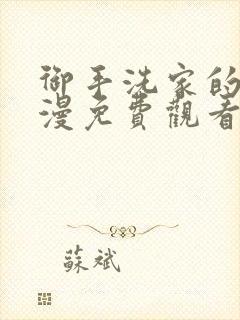 御手洗家的
漫免費觀看
蘇斌